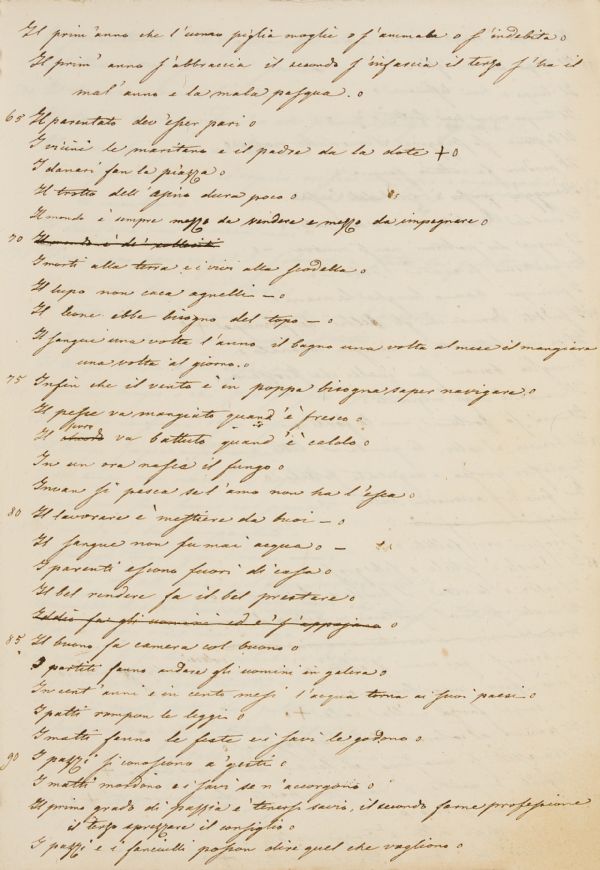 Il prim'anno che l'uomo piglia moglie o s'ammala o s'indebita o
Il prim' anno s'abbraccia il secondo s'infascia il terzo s'ha il
mal' anno e la mala pasqua. o
65 Il parentato dev'esser pari o
I vicini le maritano e il padre da la dote + o
I danari fan la piazza o
Il trotto dell'asino dura poco o
Il mondo è sempre mezzo da vendere e mezzo da impegnare o
70 Il mondo è de' solleciti
I morti alla terra e i vivi alla scodella o
Il lupo non caca agnelli – o
Il leone ebbe bisogno del topo – o
Il sangue una volta l'anno, il bagno una volta al mese il mangiare
una volta al giorno. o
75 Infin che il vento è in poppa bisogna saper navigare o
Il pesce va mangiato quand'è fresco o
Il ferro va battuto quand'è caldo o
In un ora nasce il fungo o
Invan si pesca se l'amo non ha l'esca o
80 Il lavorare è mestiere da buoi – o
Il sangue non fu mai acqua o –
I parenti escono fuori di casa o
Il bel rendere fa il bel prestare o
Iddio fa gli uomini ed e' s'appajano o
85 Il buono fa camera col buono o
I partiti fanno andare gli uomini in galera o
In cent'anni e in cento mesi l'acqua torna ai suoi paesi o
I patti rompon le leggi o
I matti fanno le feste e i savi le godono o
90 I pazzi si conoscono a' gesti o
I matti mordono e i savi se n'accorgono o
Il primo grado di pazzia è tenersi savio, il secondo farne professione
il terzo sprezzare il consiglio o
I pazzi e i fanciulli posson dire quel che vogliono o